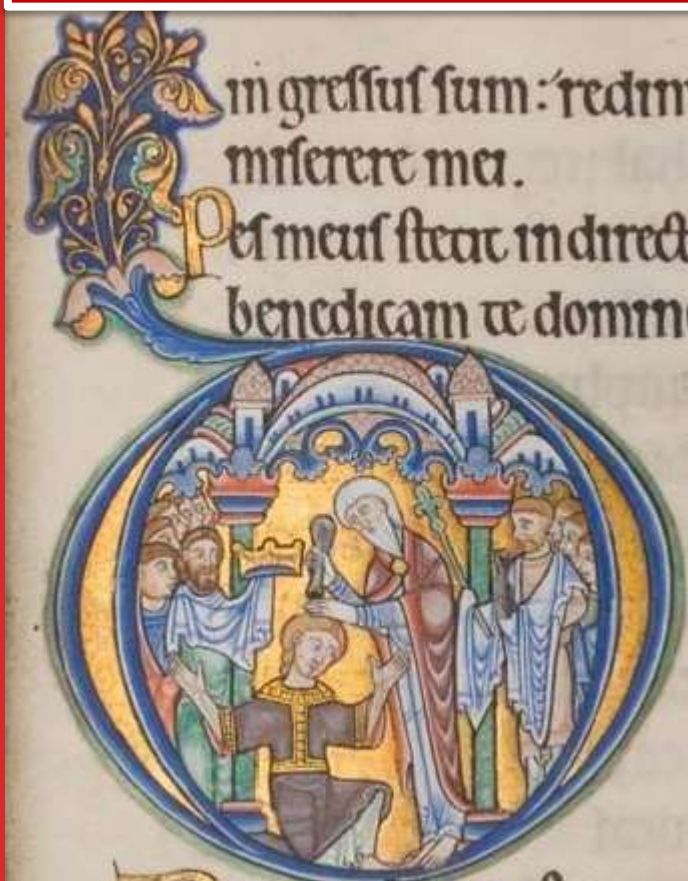 ingressus sum: redim
miserere mei.
Pes meus stetit in direct
benedicam te domin
D